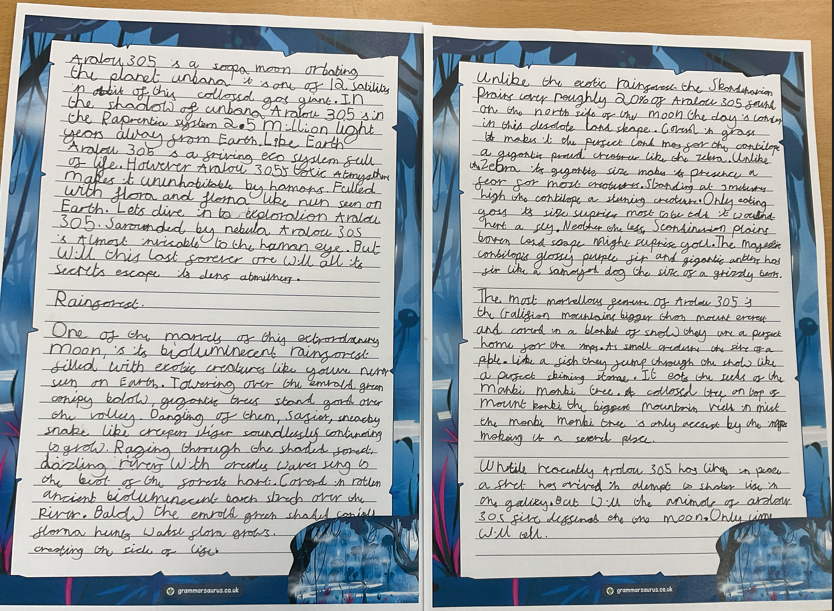 Aralou 305 is a soopa moon orbating
the planet unbana is one of 12 satilites
in orbit of this collosed gas giant. In
the shadow of unbana Aralou 305 is in
the Raprentia system 2.5 million light
years away from Earth. Like Earth
Aralou 305 is a friving eco system full
of life. However Aralou 305s toxic Atmosphere
makes it uninhabitable by hamons. Filled
with flora and florna like nun seen on
Earth. Lets dive in to exploration Aralou
305. Sarounded by nebula Aralou 305
is Almost invisable to the human eye. But
will this last forever ore will all its
secrets escape its dens atmosthere.
Rainforest.
One of the marvels of this extrordanery
moon, is its bioluminecent rainforest
filled with exotic creatures like youve nurv
sun on Earth. Towering over the emrold green
conipy bolow, gegantic trees stand gard over
the valley. Dangling of them, sneacky
snake like creepen soundlessly continuing
to grow. Raging through the shaded forest
dazzling rivers with waves sing to
the beat of the forests hart. Coverd in rotten
ancient bioluminecent barck strech over the
River. Balow the emrold green shaded
florna hunts Whilst flora grows.
creating the sircle of life.
Unlike the exotic rainforest the Skandinavian
Prains cover roughly 20% of Aralou 305 found
on the north side of the moon the day is longer
in this desolate land skape. Coverd in grass
it makes it the perfect land mas for the contilope
a gigantic proud creature like the zebra. Unlike
the Zebra its gigantic size makes its presence a
fear for most creatures. Standing at 3 meters
high the contilope a stuning creature. Only eating
gras its size suprise most
hert a sky. Neather the less, Scandinavian plains
boren land scape might suprise you. The Majestic
contilopes glossy purple fir and gigantic antlers has
fir like a samoyed dog the size of a grizzly bear.
The most marvellous feature of Aralou 305 is
the mountains bigger than mount everest
and coverd in a blanket of snow they are a perfect
home for the . A small creature the size of a
pple. Like a fish they jump through the snow like
a perfect skiming stone. It eats the seeds of the
Manki Manki tree. A collosed tree on top of
Mount the biggest mountain in mist
the manki manki tree is only accest by the
making it a peace.
Whitle recently Aralou 305 has lived in peace
a fret has arived in atempt to shater life in
the galixy. But will the animals of aralou
305 the one moon. Only time
Will tell.
grammarsaurus.co.uk
grammarsaurus.co.uk